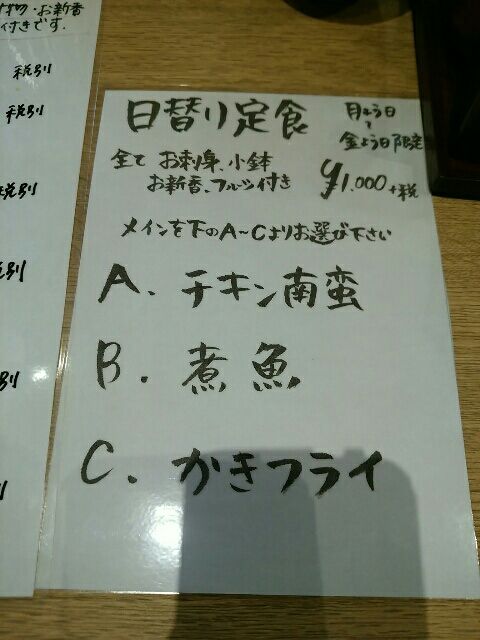 お新香
付きです.
税別
税別
税別
税別
日替り定食
月よう日
〜
金よう日限定
全て お刺身、小鉢
お新香、フルーツ付き
¥1,000+税
メインを下のA〜Cよりお選び下さい
A. チキン南蛮
B. 煮魚
C. かきフライ